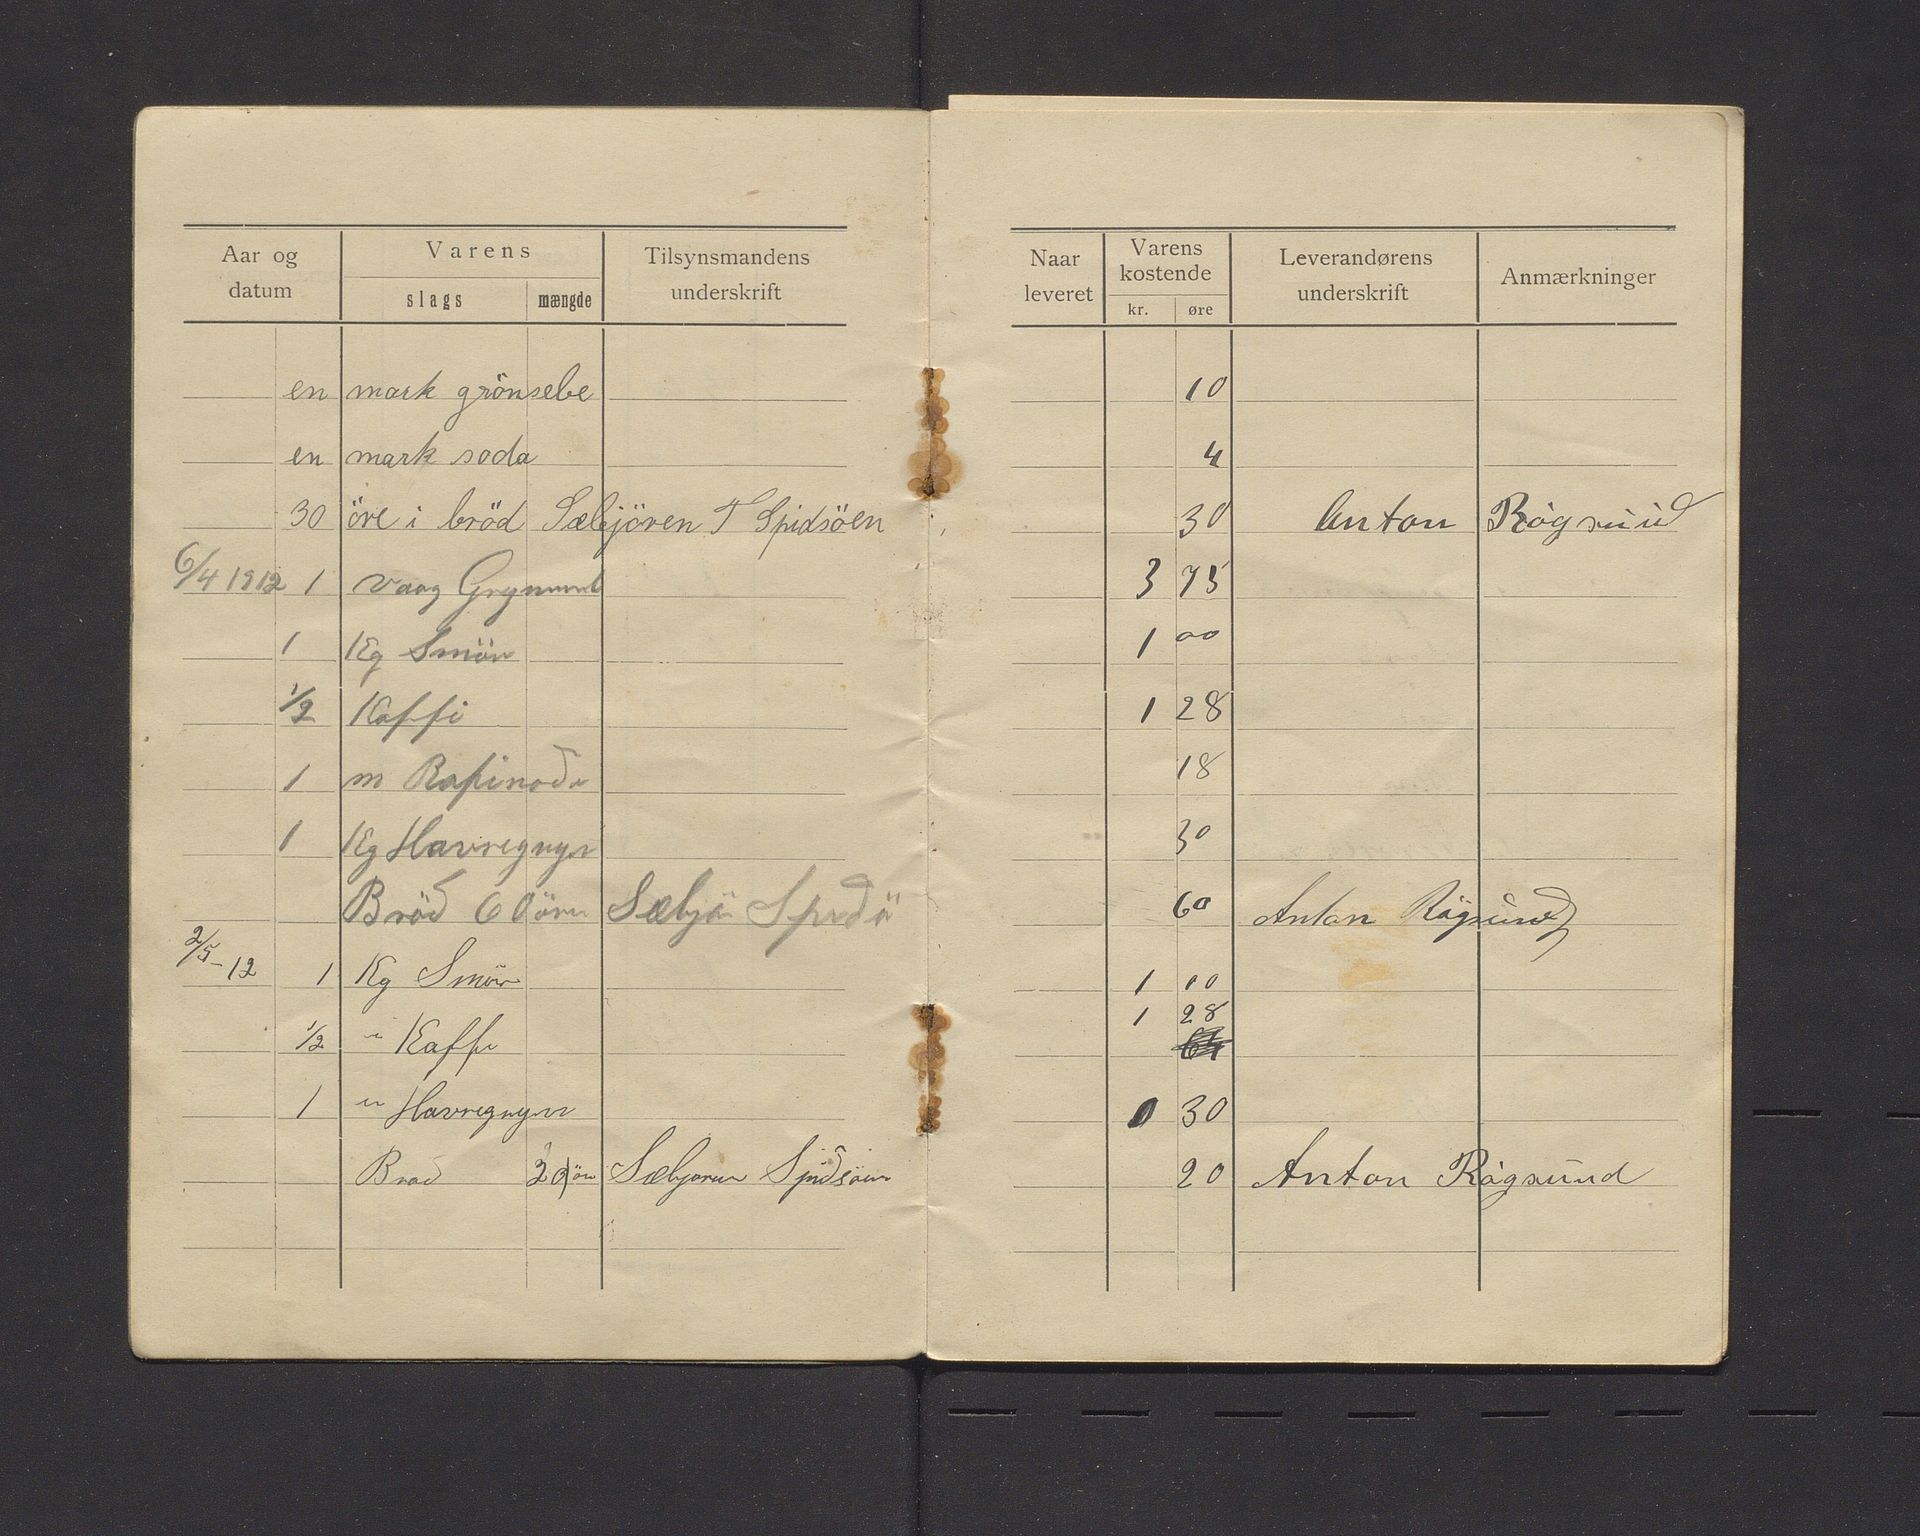 Aar og datum | Varens slags | mængde | Tilsynsmandens underskrift | Naar leveret | Varens kostende kr. | øre | Leverandørens underskrift | Anmærkninger
en mark grönsebe 10
en mark soda 4
30 öre i bröd Sæbjören T Spidsöen 30 Anton Rögsund
6/4 1912 1 vaag Grynmel 3 75
1 Kg Smör 1 00
1/2 Kaffi 1 28
1 m Rafinade 18
1 Kg Havregryn 30
Bröd 60 öre Sæbjö Spidsö 60 Anton Rögsund
2/5-12 1 Kg Smör 1 10
1/2 " Kaffe 1 28
1 " Havregryn 0 30
Bröd 20 öre Sæbjören Spidsöen 20 Anton Rögsund